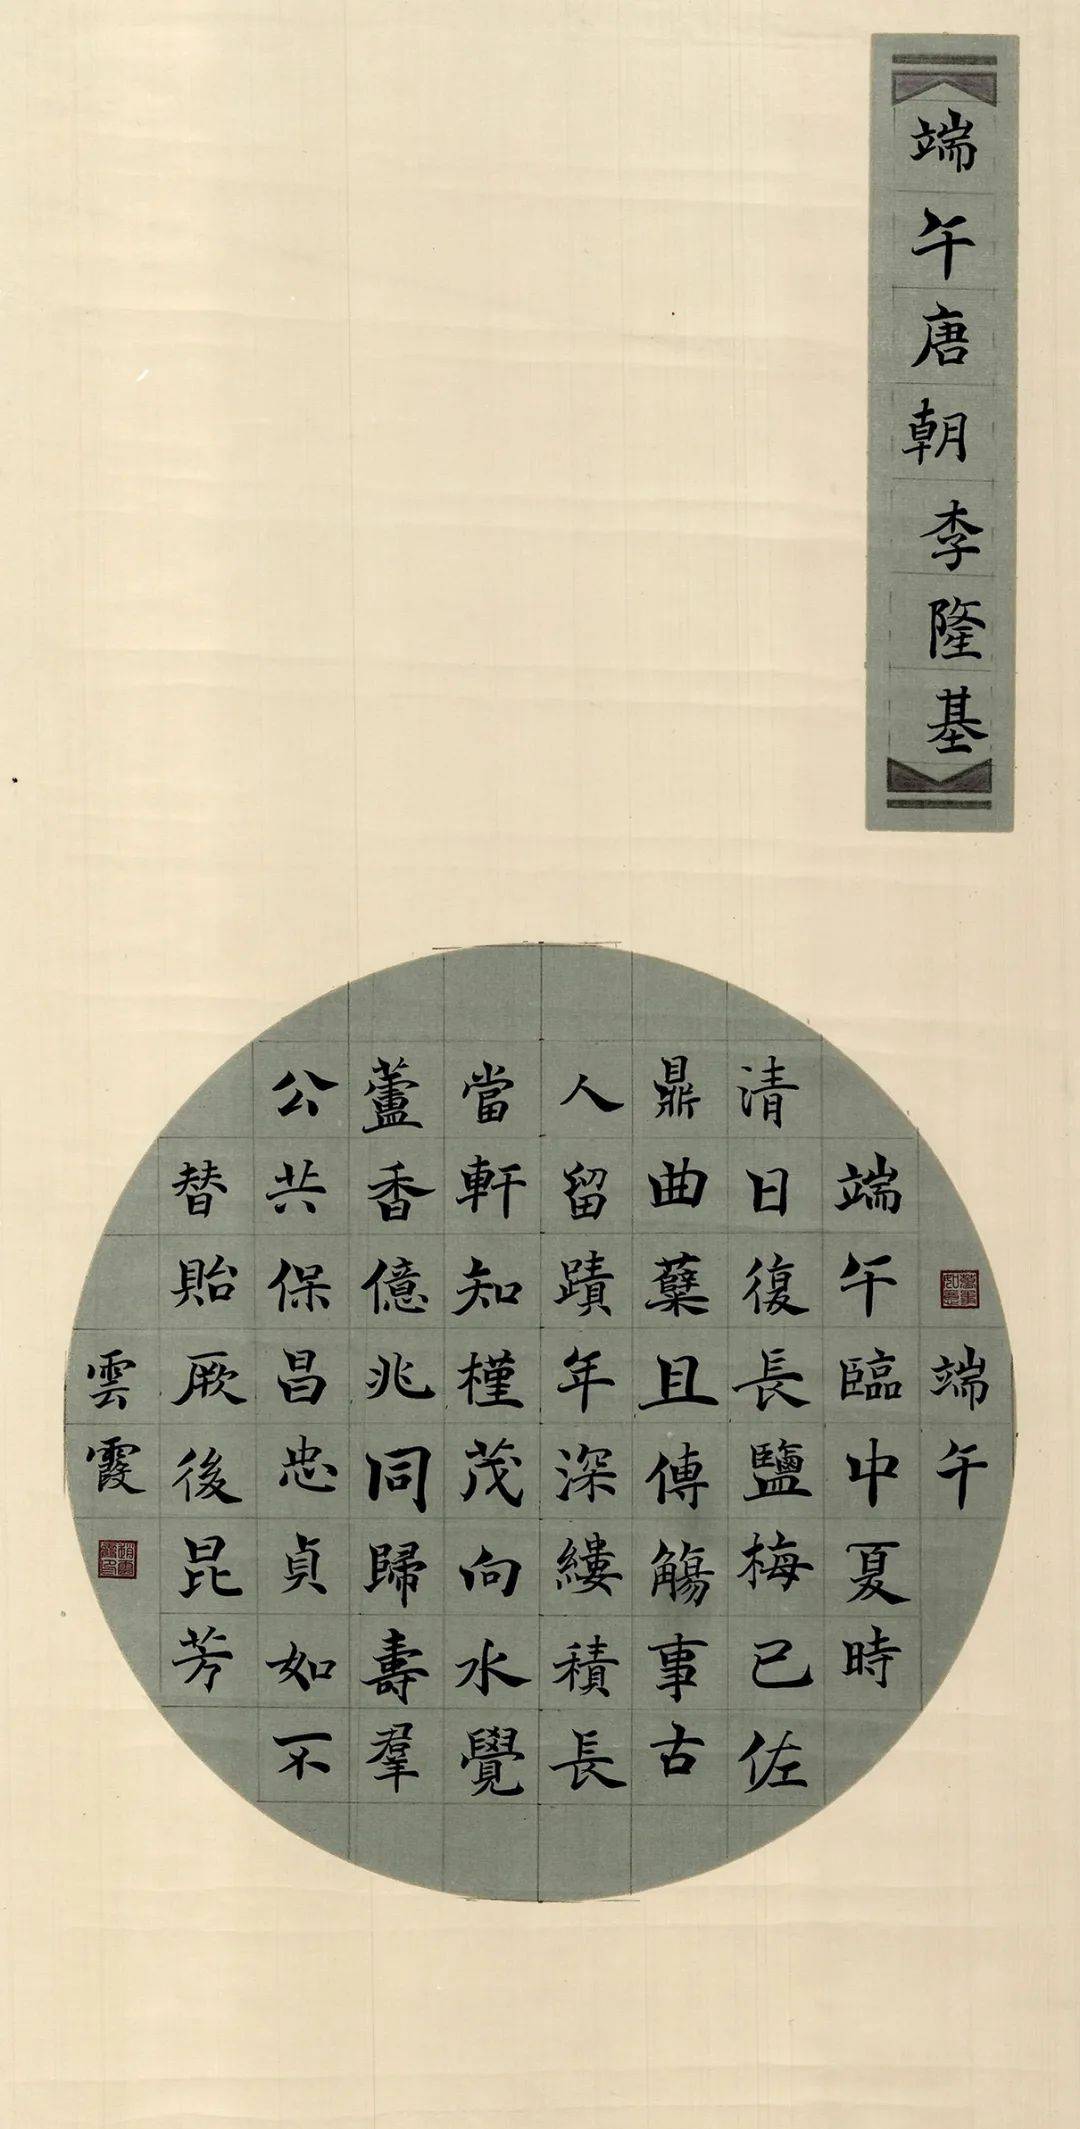 端午唐朝李隆基
端午
端午臨中夏時
清日復長鹽梅已佐
鼎曲蘖且傳觴事古
人留蹟年深縷積長
當軒知槿茂向水覺
蘆香億兆同歸壽羣
公共保昌忠貞如不
替貽厥後昆芳
雲霞